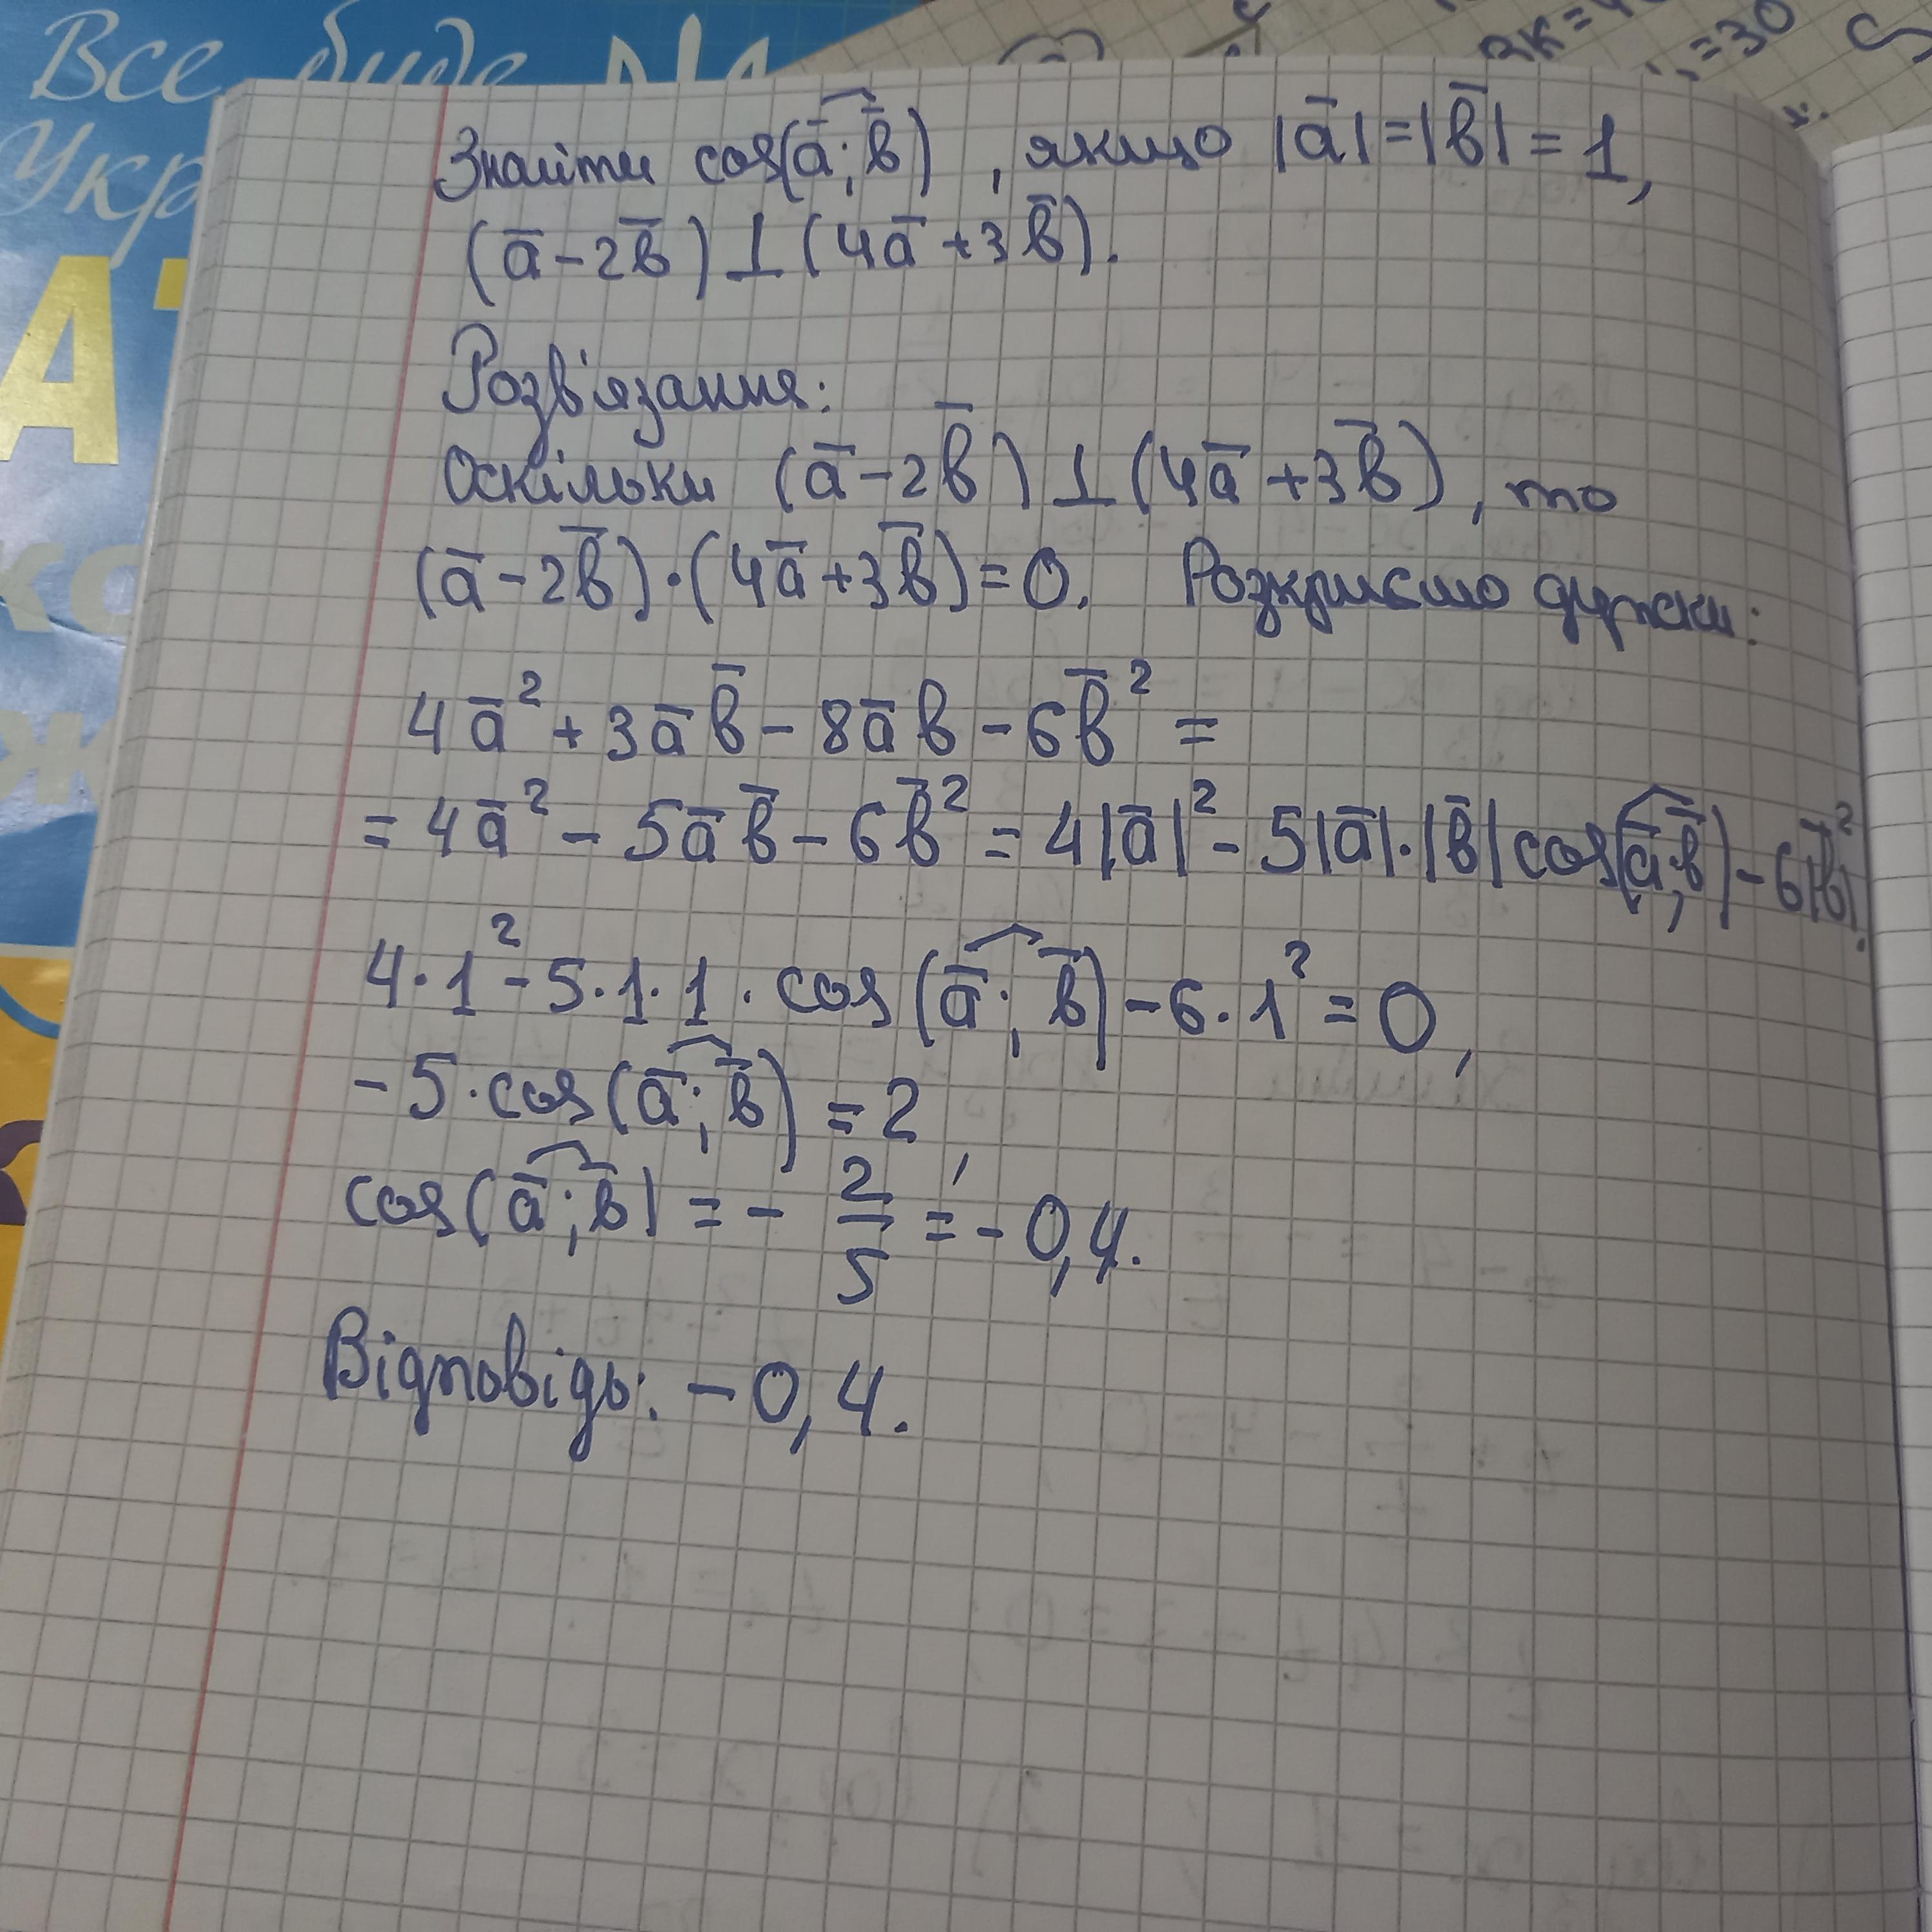 Все буде
Укр
АТ
ко
ж
3к=4
=30
Знайти cos(a̅; b̅), якщо |a̅|=|b̅|=1,
(a̅-2b̅)⊥(4a̅+3b̅).
Розв'язання:
Оскільки (a̅-2b̅)⊥(4a̅+3b̅), то
(a̅-2b̅)·(4a̅+3b̅)=0. Розкриємо дужки:
4a̅²+3a̅b̅-8a̅b-6b̅²=
=4a̅²-5a̅b̅-6b̅²=4|a̅|²-5|a̅|·|b̅|cos(a̅;b̅)-6|b̅|².
4·1²-5·1·1·cos(a̅; b̅)-6·1²=0,
-5·cos(a̅; b̅)=2,
cos(a̅; b̅)=-2/5=-0,4.
Відповідь: -0,4.